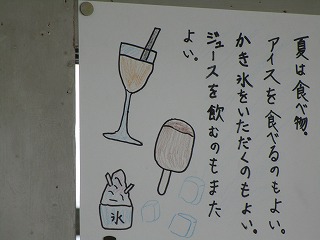 夏は食べ物。
アイスを食べるのもよい。
かき氷をいただくのもよい。
ジュースを飲むのもまた
よい。
氷